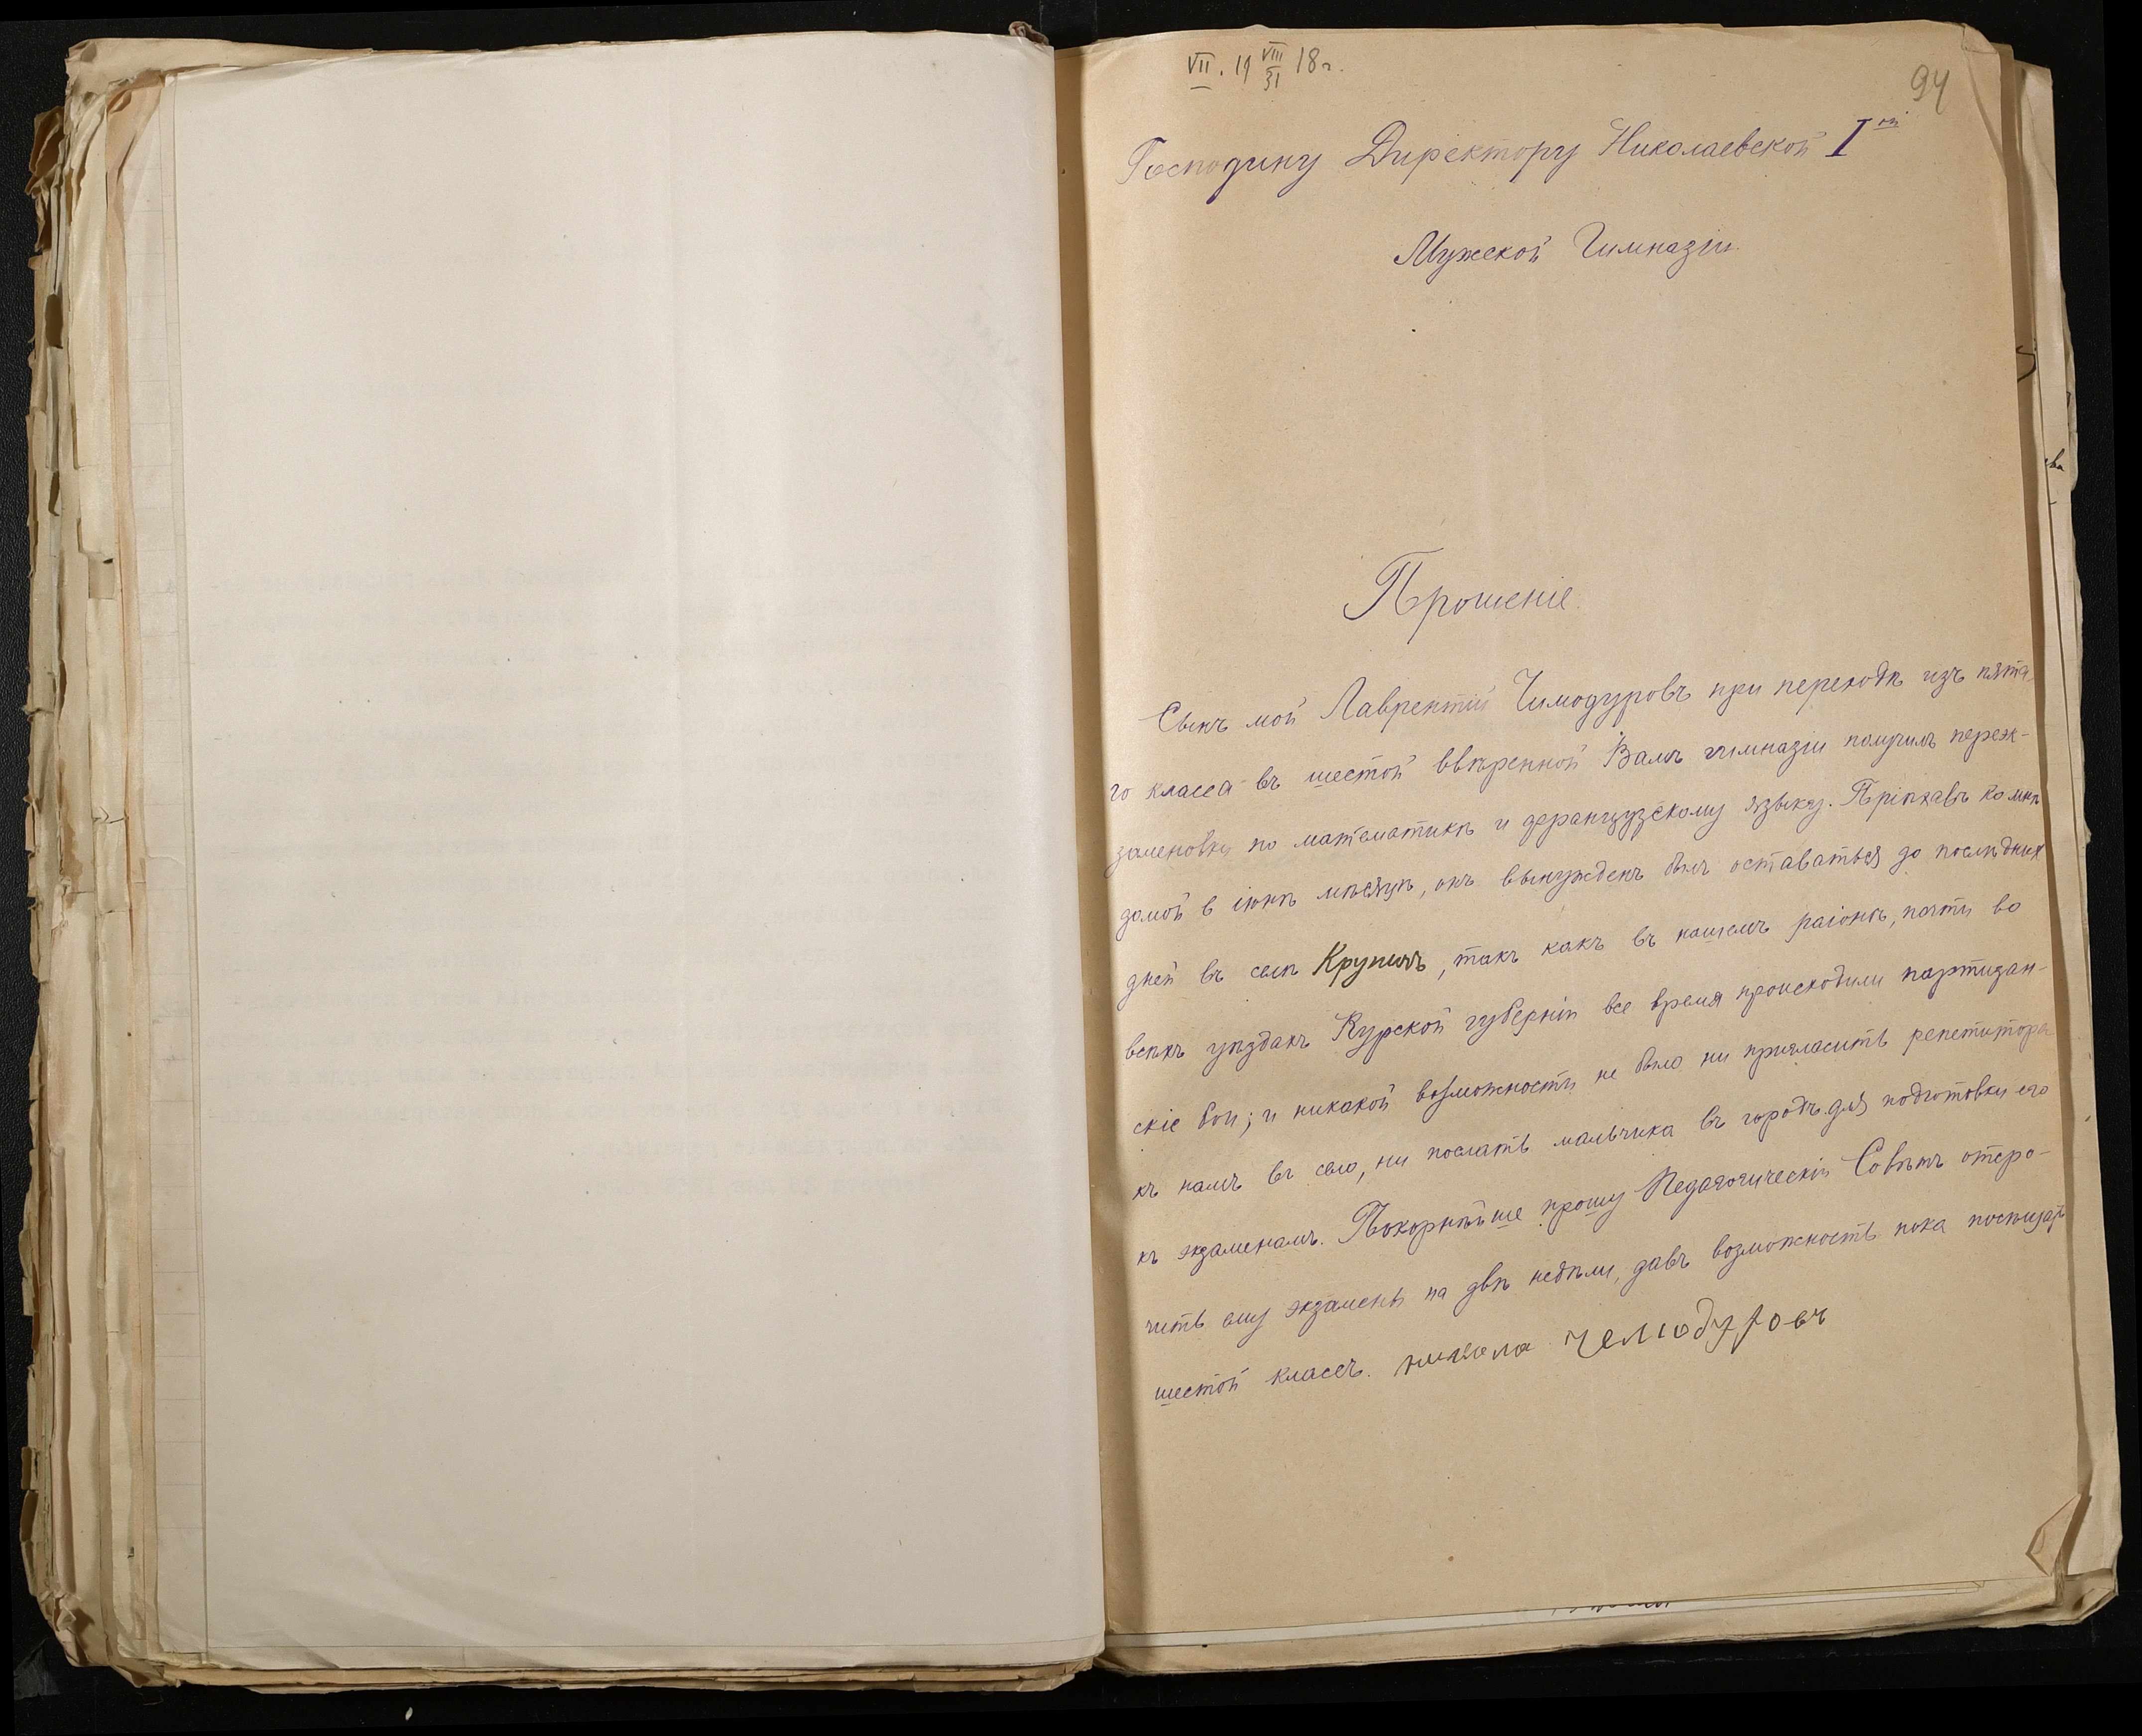 VII. 19 VIII/31 18 г.
94
Господину Директору Николаевской I ой
Мужской Гимназіи
Прошеніе.
Сынъ мой Лаврентій Чимодуровъ при переходѣ изъ пята-
го класса въ шестой ввѣренной Вамъ гимназіи получилъ переэк-
заменовки по математикѣ и французскому языку. Пріѣхавъ ко мнѣ
домой в іюнѣ мѣсяцѣ, онъ вынужденъ былъ оставаться до послѣдних
дней въ селѣ Крупецъ, такъ какъ въ нашемъ раіонѣ, почти во
всѣхъ уѣздахъ Курской губерніи все время происходили партизан-
скіе бои; и никакой возможности не было ни пригласить репетитора
къ намъ въ село, ни послать мальчика въ городъ для подготовки его
къ экзаменамъ. Покорнѣйше прошу Педагогическій Совѣтъ отсро-
чить ему экзамены на двѣ недѣли, давъ возможность пока посѣщать
шестой классъ. чемодуровъ